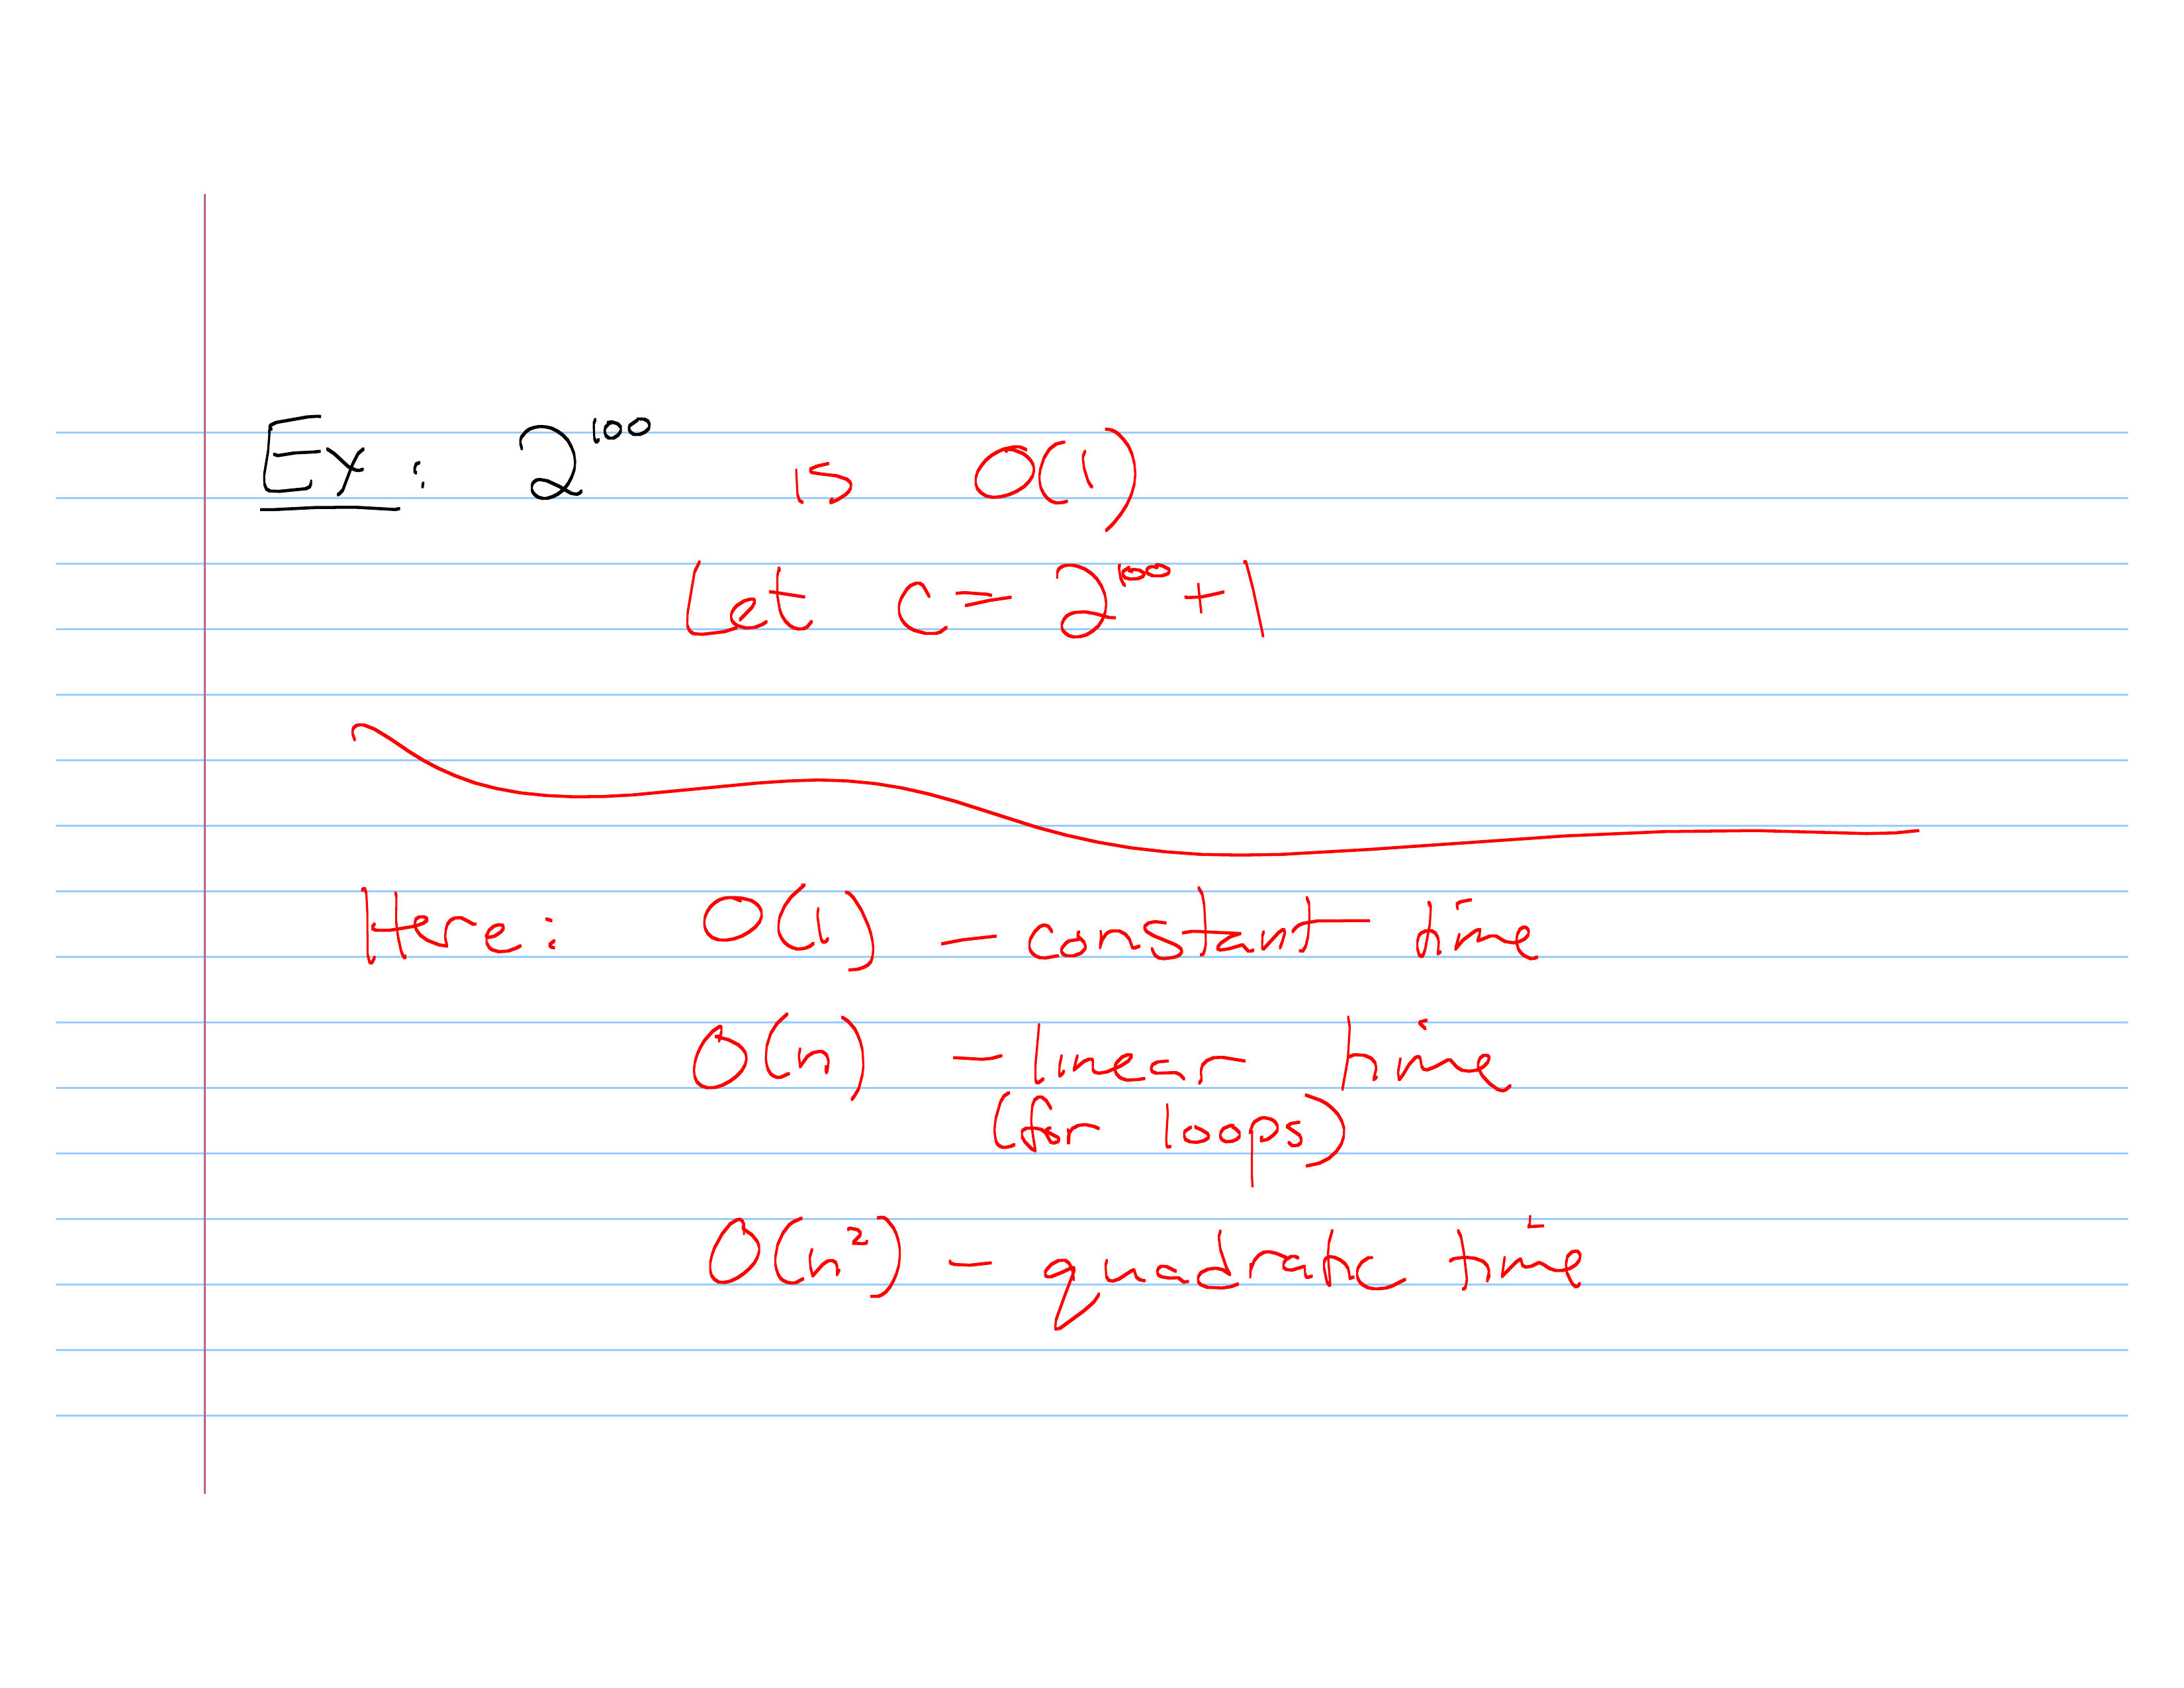 Ex: 2^100 is O(1)
Let c = 2^100 + 1
Here: O(1) - constant time
O(n) - linear time
(for loops)
O(n²) - quadratic time